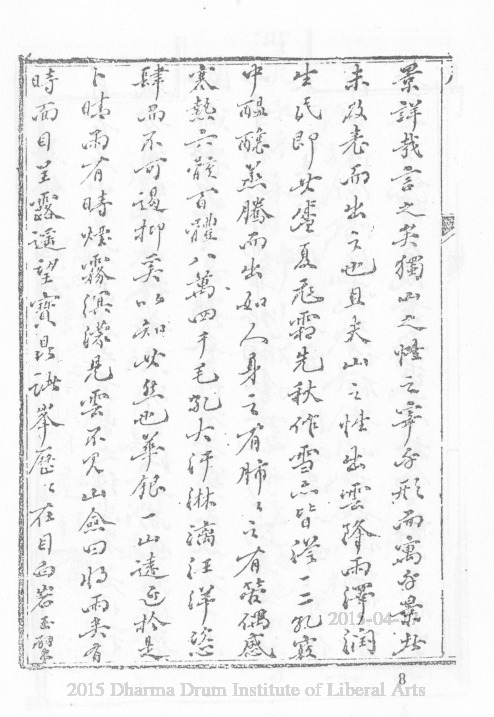 景詳哉言之矣獨山之性之寓于形而寓于景者
未啟老而出之也且夫山之性出雲降雨澤潤
生民即如盛夏飛霜先秋作雪亦皆從一二孔竅
中醞釀蒸騰而出如人身之有肺之有竅偶感
寒熱六骸百體八萬四千毛孔大汗淋漓汪洋恣
肆而不可遏抑奚以知其然也華銀一山遠近於是
卜晴雨有時煙霧溟濛見雲不見山僉曰將雨矣有
時面目呈露遙望寶鼎諸峯歷歷在目
2015-04-
8
2015 Dharma Drum Institute of Liberal Arts